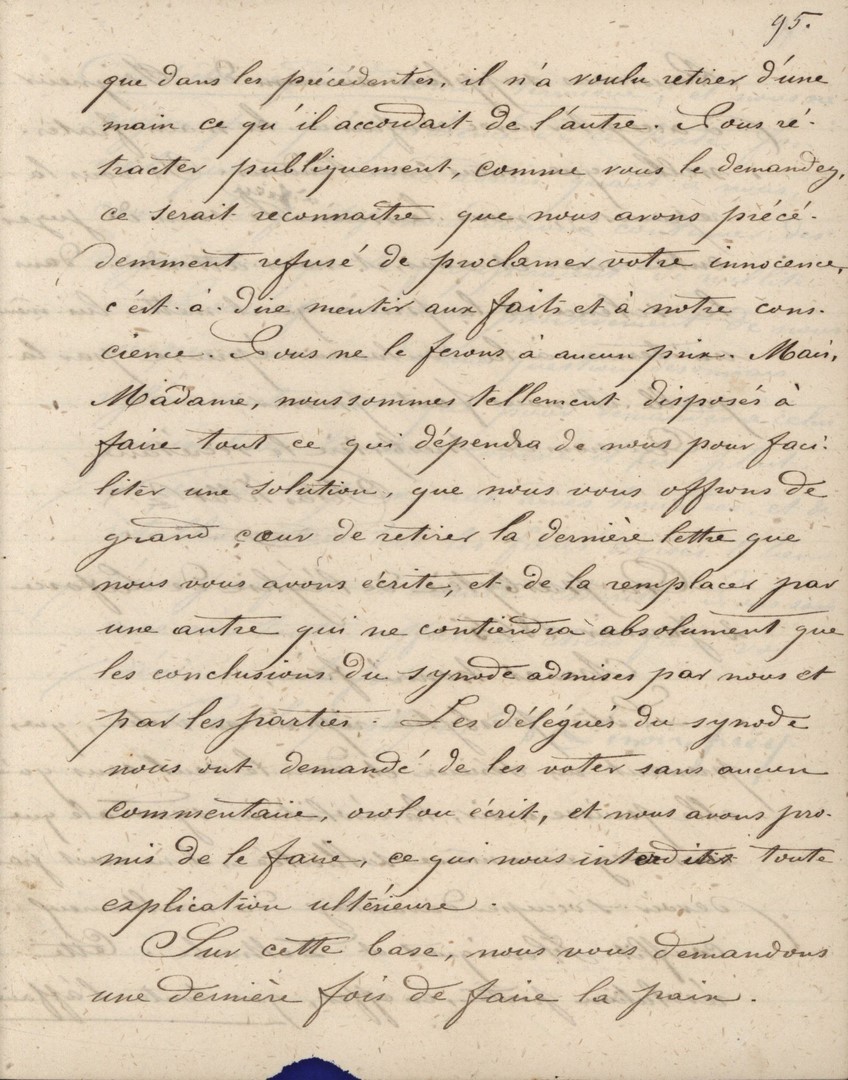 95.
que dans les précédentes, il n'a voulu retirer d'une
main ce qu'il accordait de l'autre. Nous ré-
tracter publiquement, comme vous le demandez,
ce serait reconnaître que nous avons précé-
demment refusé de proclamer votre innocence,
c'est-à-dire mentir aux faits et à notre cons-
cience. Nous ne le ferons à aucun prix. Mais,
Madame, nous sommes tellement disposés à
faire tout ce qui dépendra de nous pour faci-
liter une solution, que nous vous offrons de
grand cœur de retirer la dernière lettre que
nous vous avons écrite, et de la remplacer par
une autre qui ne contiendra absolument que
les conclusions du synode admises par nous et
par les parties. Les délégués du synode
nous ont demandé de les voter sans aucun
commentaire, oral ou écrit, et nous avons pro-
mis de le faire, ce qui nous interdit toute
explication ultérieure.
Sur cette base, nous vous demandons
une dernière fois de faire la paix.